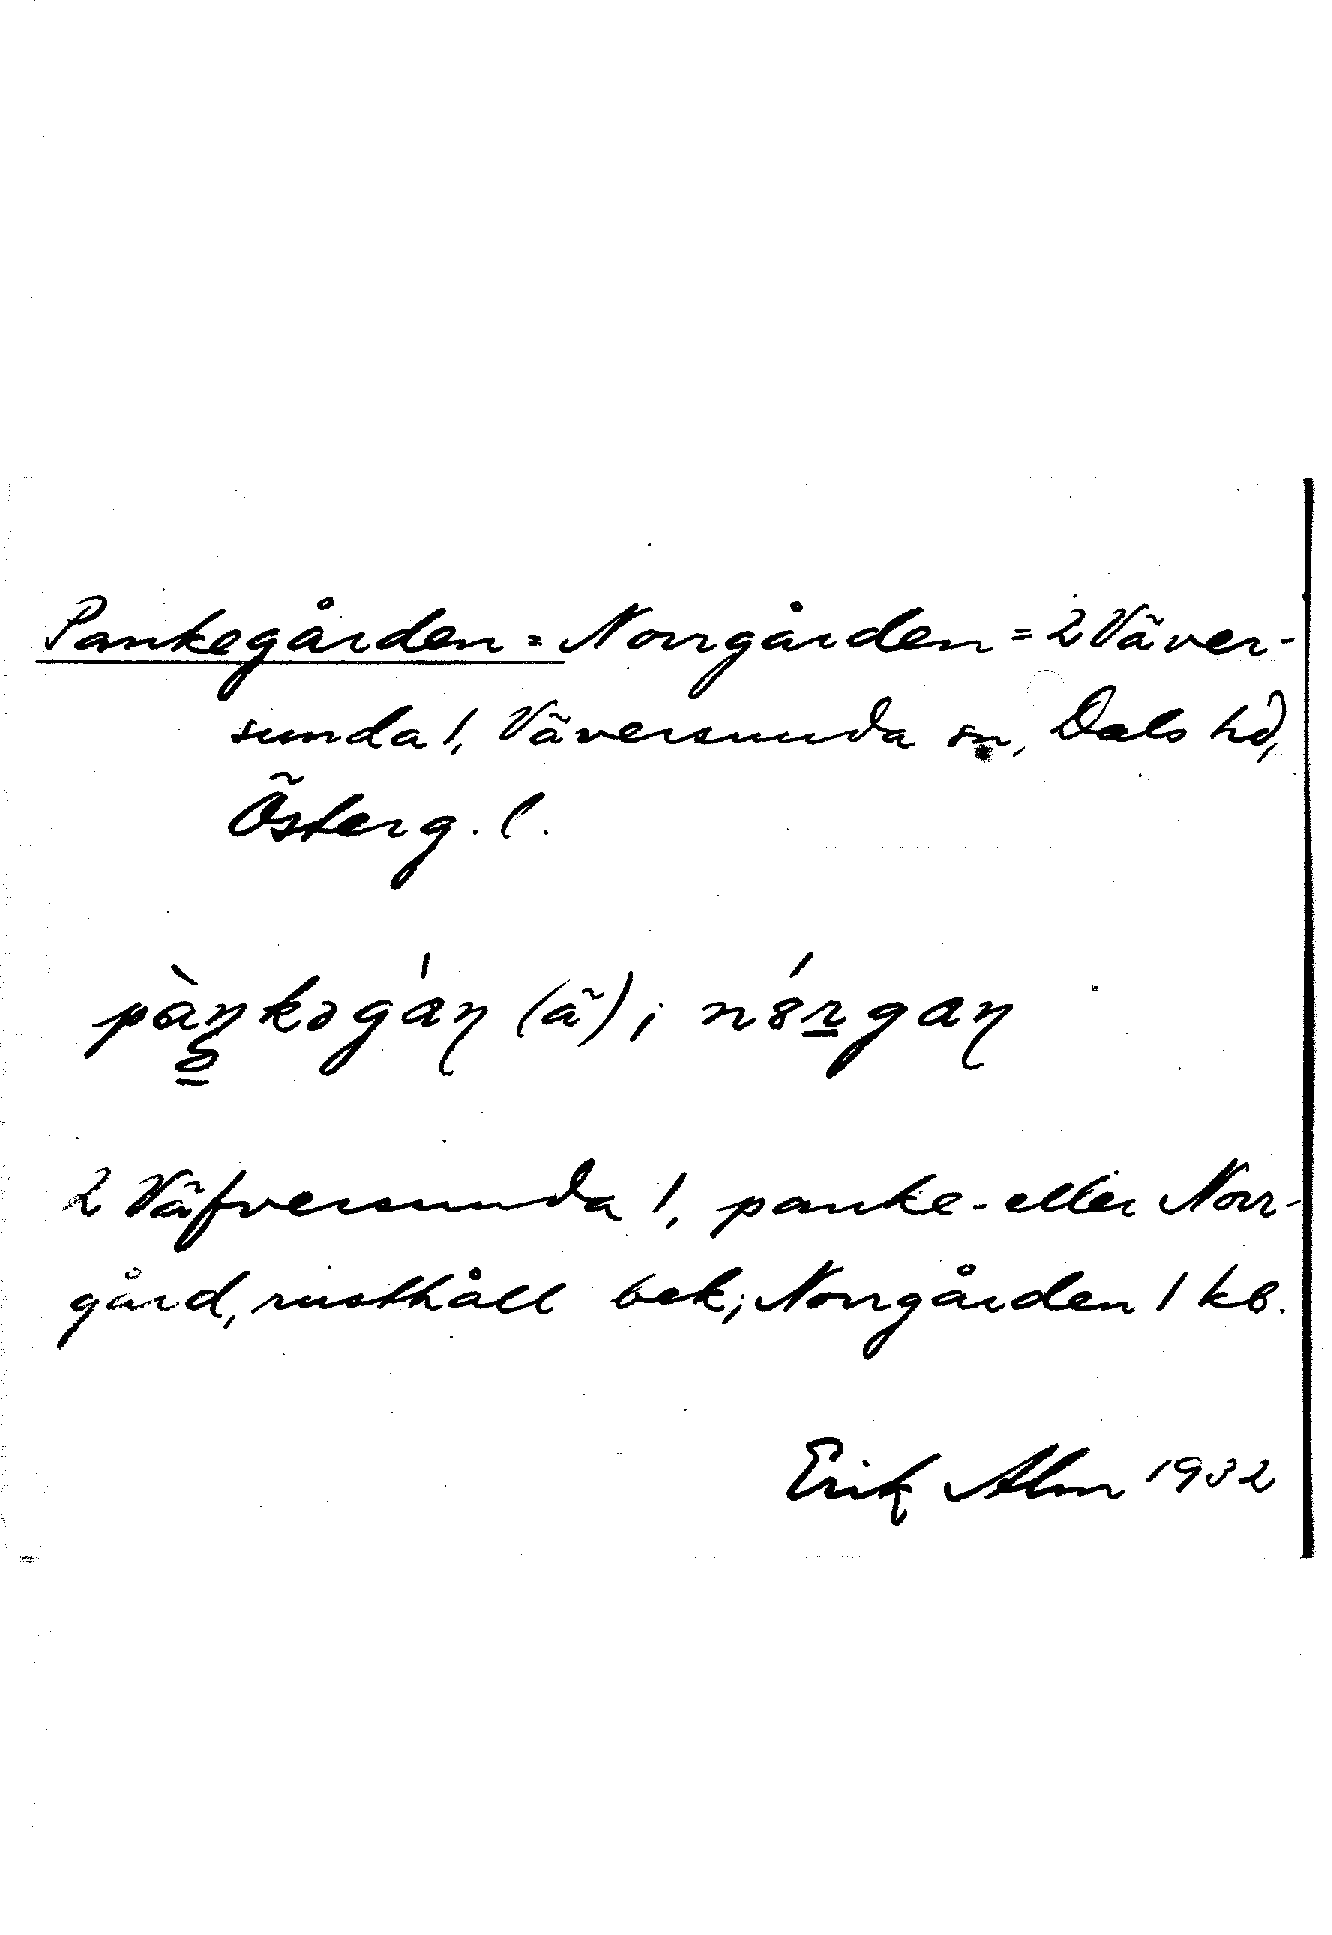 Pankegården = Norrgården = 2 Väver-
sunda 1, Väversunda sn, Dals hd,
Österg. l.
pàŋkəgán (ä); nórgan
2 Väfversunda 1, panke- eller Norr-
gård, rusthåll bek; Norrgården 1 kb.
Erik Alm 1932